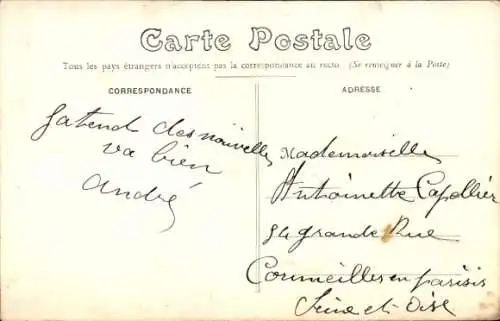 Carte Postale
Tous les pays étrangers n'acceptent pas la correspondance au recto (Se renseigner à la Poste)
CORRESPONDANCE
Jatend des nouvelles
va bien
André
ADRESSE
Mademoiselle
Antoinette Capellier
54 grande Rue
Cormeilles en parisis
Seine et Oise